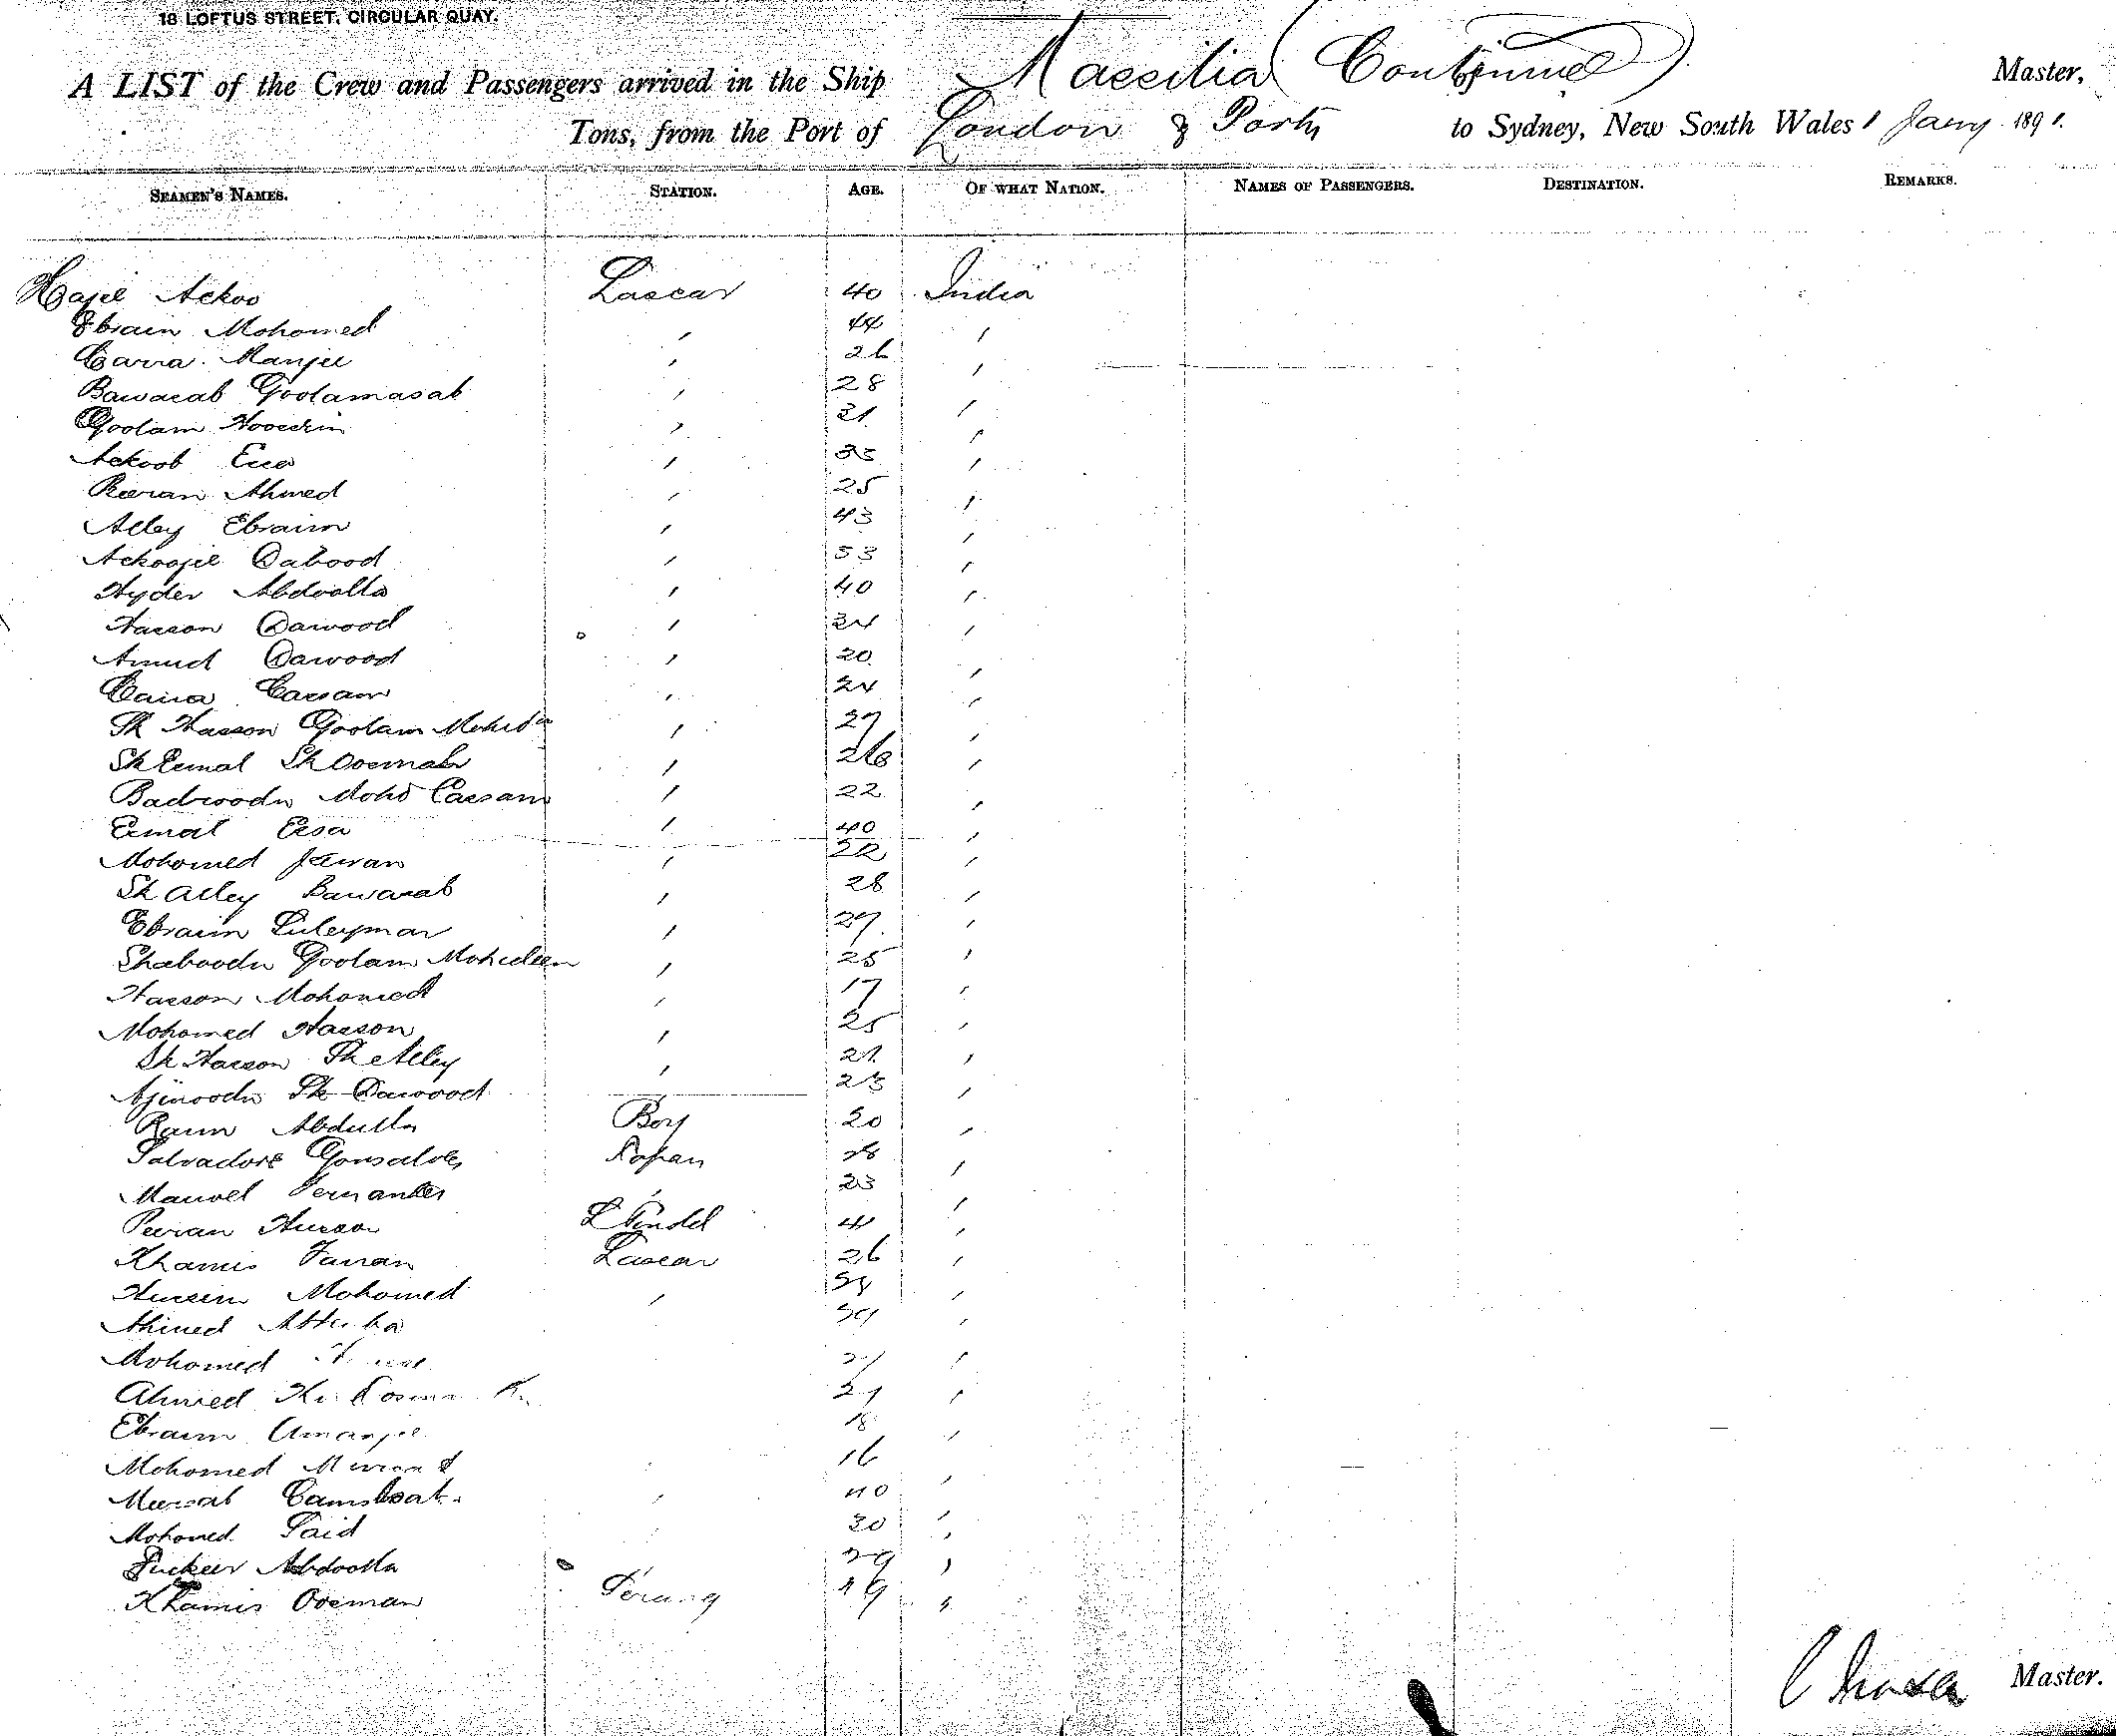 18 LOFTUS STREET, CIRCULAR QUAY.
A LIST of the Crew and Passengers arrived in the Ship Massilia (Continued) Master,
Tons, from the Port of London & Ports to Sydney, New South Wales 1 Jany 1891.
SEAMEN'S NAMES. STATION. AGE. OF WHAT NATION. NAMES OF PASSENGERS. DESTINATION. REMARKS.
Hajee Ackoo Lascar 40 India
Ebraim Mohomed " 44 "
Carra Manjee " 26 "
Bawasab Goolamasab " 28 "
Goolam Hoosein " 31 "
Ackoob Essa " 35 "
Peeran Ahmed " 25 "
Alley Ebraim " 43 "
Ackoojee Dabood " 53 "
Hyder Abdoolla " 40 "
Hasson Dawood " 24 "
Amud Dawood " 20 "
Cassam " 24 "
Sk Hasson Goolam Mohid " 27 "
Sk Esmal Sk Oosman " 26 "
Badroodn Mohd Cassam " 22 "
Esmal Essa " 40 "
Mohomed Jewan " 22 "
Sk Alley Bawasab " 28 "
Ebraim Suleyman " 27 "
Shaboodn Goolam Mohideen " 25 "
Hasson Mohomed " 17 "
Mohomed Hasson " 25 "
Sk Hasson Sk Alley " 21 "
Ajinoodn Sk Dawood 23 "
Raim Abdulla Boy 20 "
Salvadore Gonsalves Topan 28 "
Manoel Fernandes " 23 "
Peeran Husson L Tindel 41 "
Khamis Farran Lascar 26 "
Hussein Mohomed " "
Ahmed "
Mohomed "
Ahmed "
Ebraim Amanjee 18 "
Mohomed 16 "
Mussab 40 "
Mohomed Said 30 "
Abdoolla 29 "
Khamis Oosman Serang 19 "
Master.